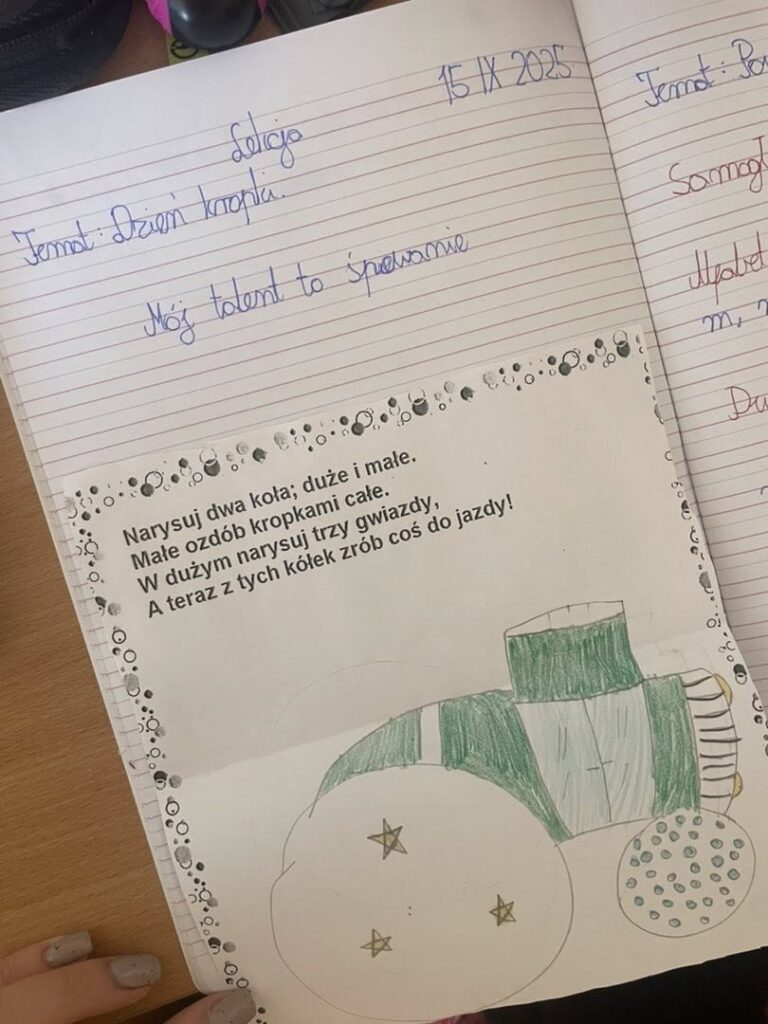 15 IX 2025
Lekcja
Temat: Dzień kropki.
Mój talent to śpiewanie
Narysuj dwa koła; duże i małe.
Małe ozdób kropkami całe.
W dużym narysuj trzy gwiazdy,
A teraz z tych kółek zrób coś do jazdy!
Temat:
m,